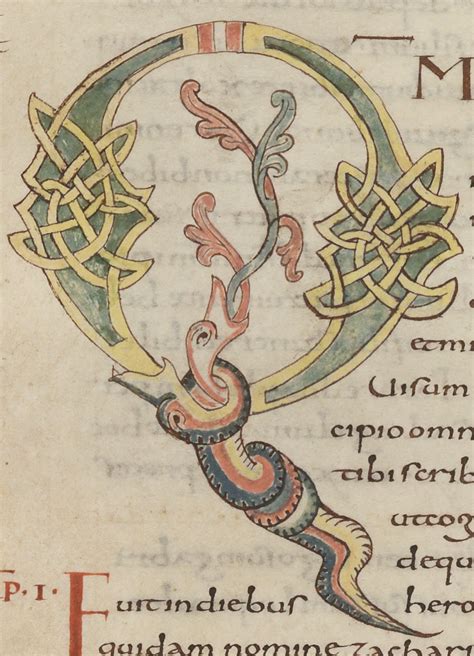 Q M
etmi
Uisum
cipioomn
tibiscrib
utcog
dequ
P · I · Fuitindiebus hero
quidam nomine zachari